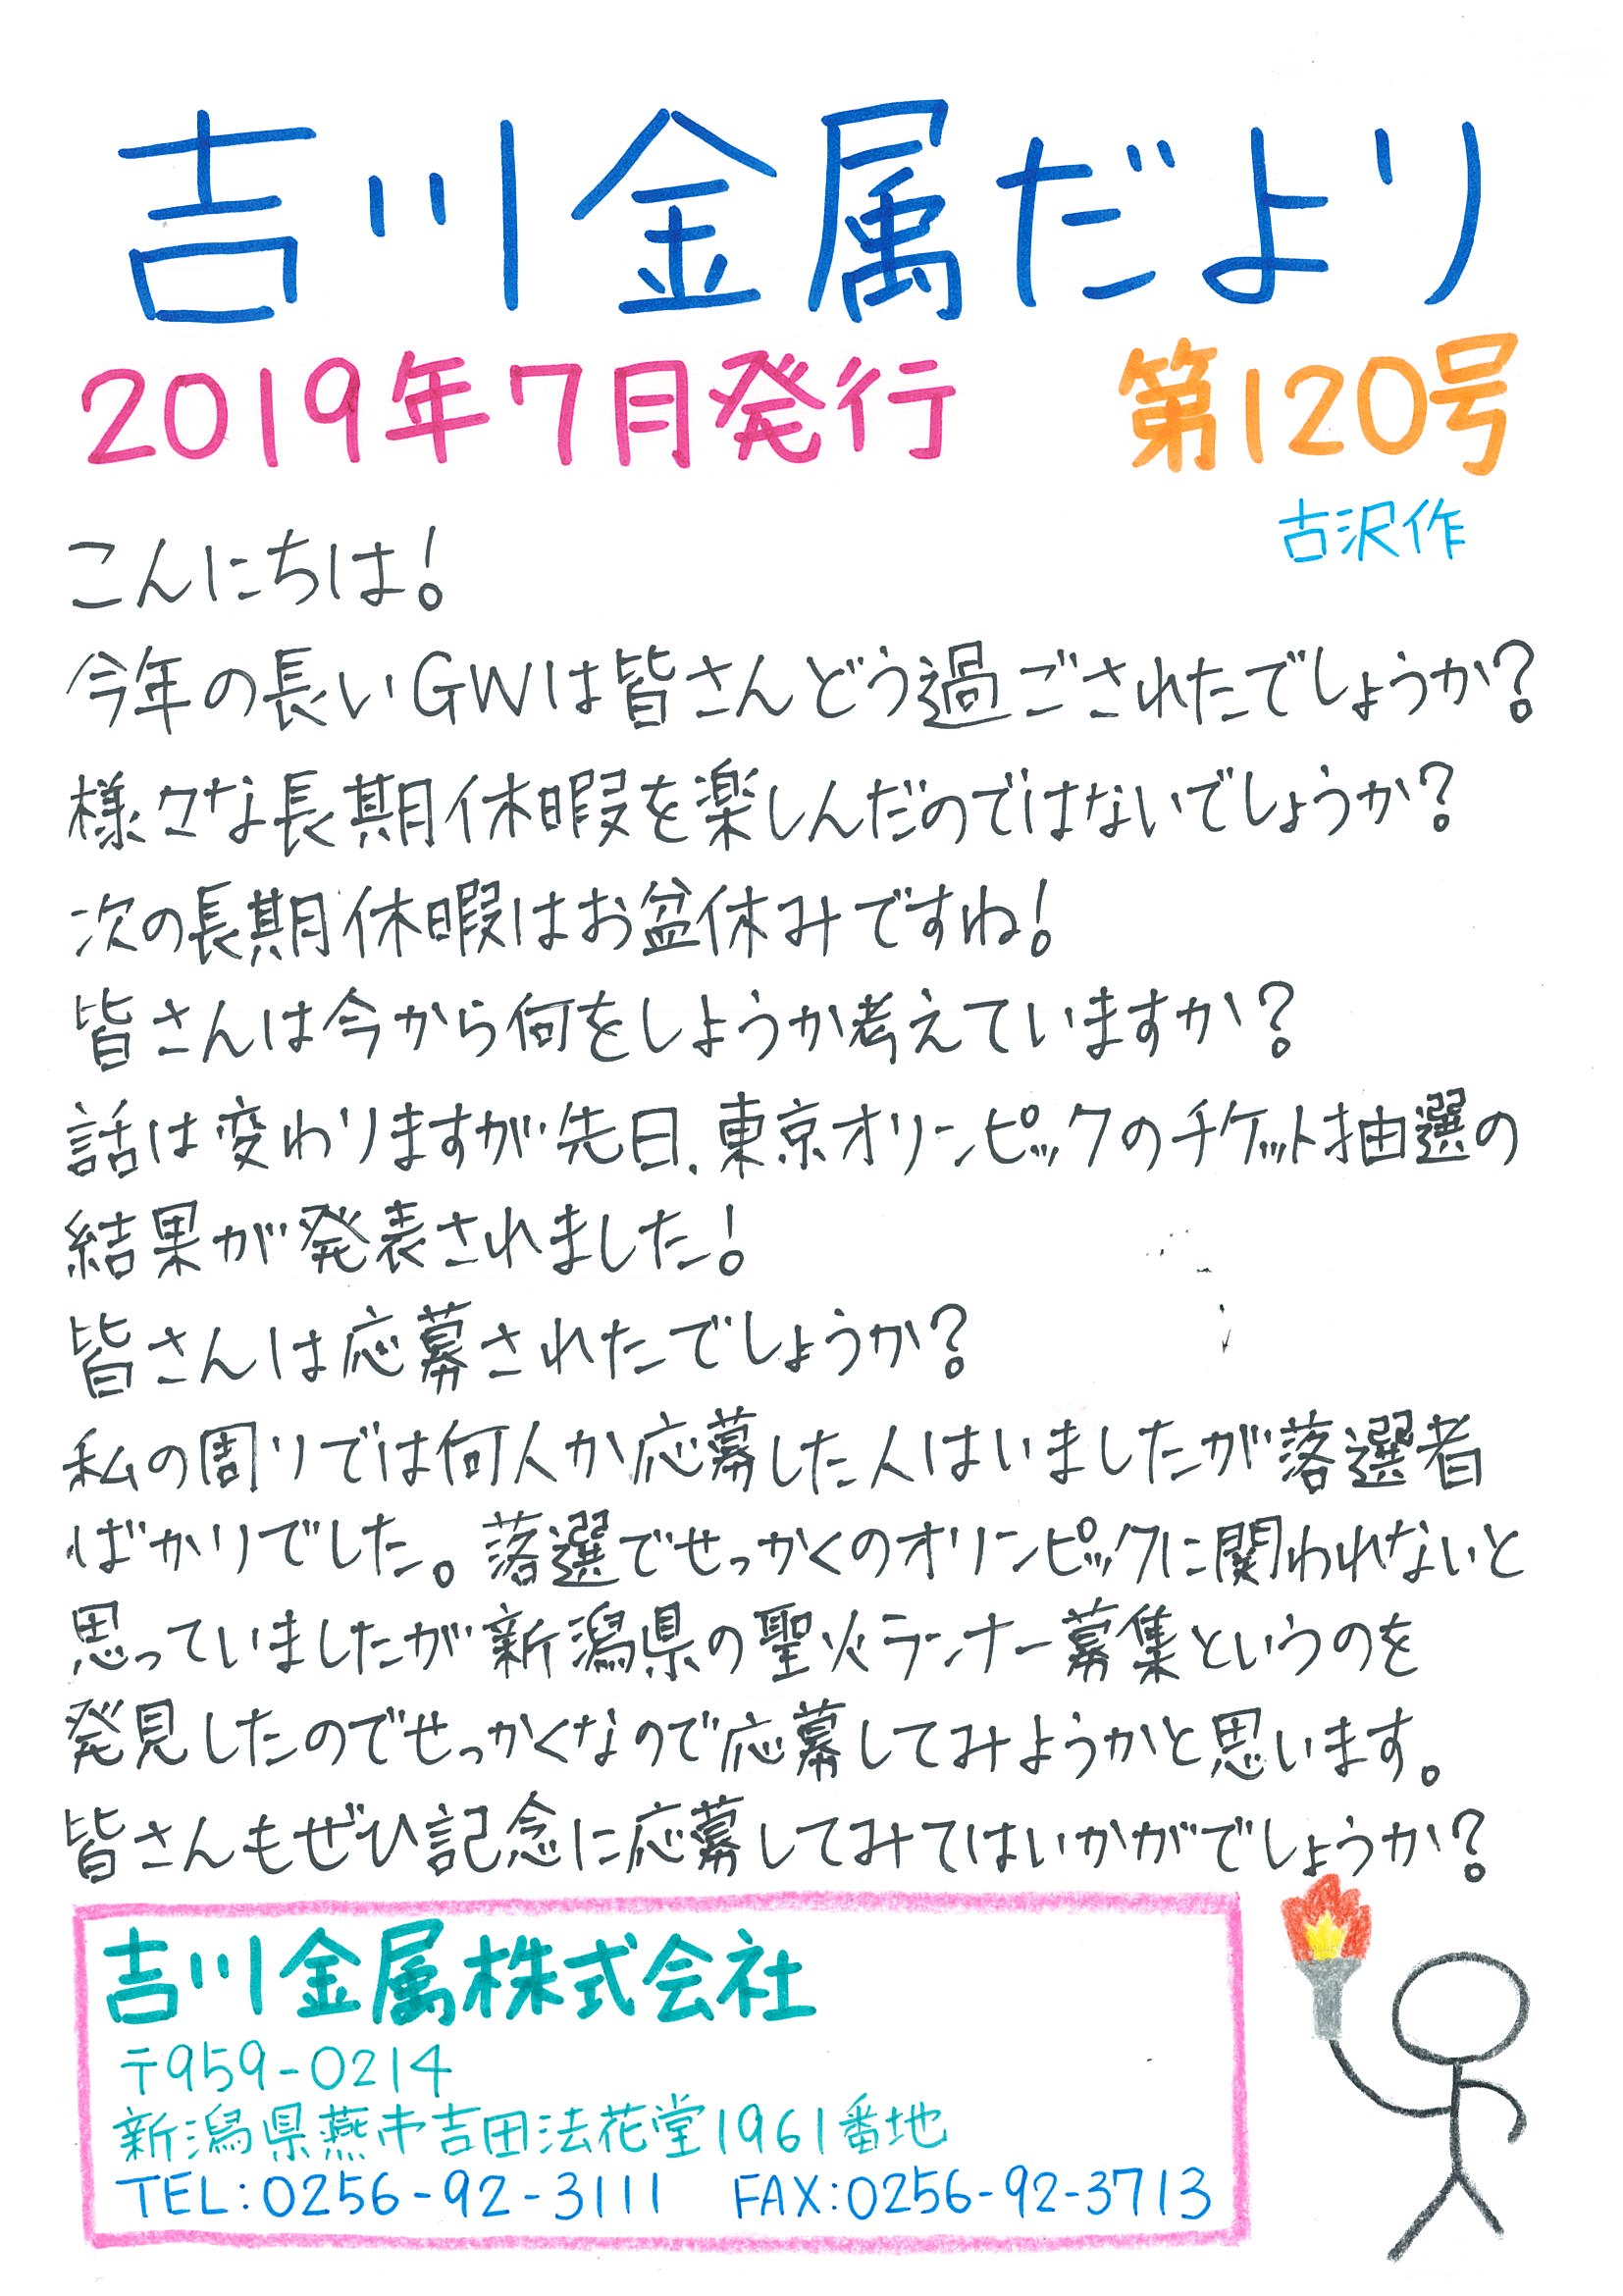 吉川金属だより
2019年7月発行 第120号
古沢作
こんにちは!
今年の長いGWは皆さんどう過ごされたでしょうか?
様々な長期休暇を楽しんだのではないでしょうか?
次の長期休暇はお盆休みですね!
皆さんは今から何をしようか考えていますか?
話は変わりますが先日、東京オリンピックのチケット抽選の
結果が発表されました!
皆さんは応募されたでしょうか?
私の周りでは何人か応募した人はいましたが落選者
ばかりでした。落選でせっかくのオリンピックに関われないと
思っていましたが新潟県の聖火ランナー募集というのを
発見したのでせっかくなので応募してみようかと思います。
皆さんもぜひ記念に応募してみてはいかがでしょうか?
吉川金属株式会社
〒959-0214
新潟県燕市吉田法花堂1961番地
TEL:0256-92-3111 FAX:0256-92-3713